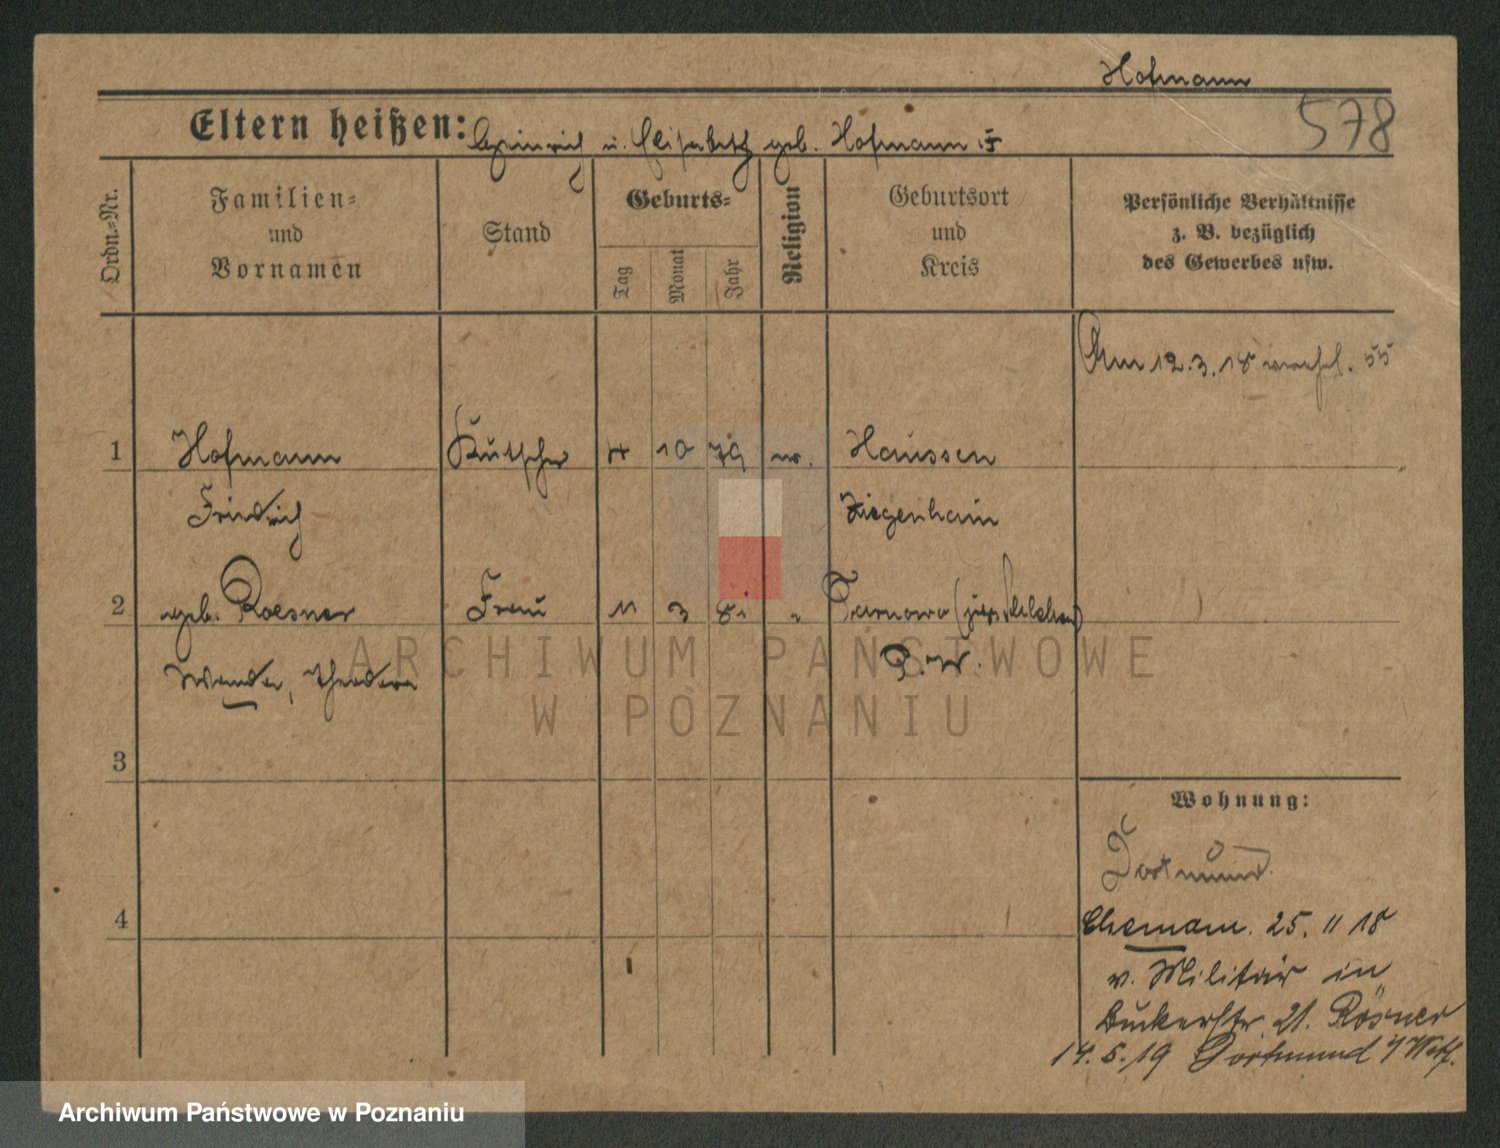 Hofmann
578
Eltern heißen: Heinrich u. Elisabeth geb. Hofmann
Ordn.=Nr.
Familien=
und
Vornamen
Stand
Geburts=
Tag
Monat
Jahr
Religion
Geburtsort
und
Kreis
Persönliche Verhältnisse
z. B. bezüglich
des Gewerbes usw.
Am 12.3.18
1 Hofmann Kutscher 4 10 79 Haussen
Friedrich Ziegenhain
2 geb. Roesner Frau 11 3 81 " Tarnowo
Wanda, Theodora P. W.
3
4
Wohnung:
Dortmund.
Ehemann. 25. 11 18
v. Militär in
Bukerstr. 21. Rösner
14.5.19 Dortmund i/Westf.
ARCHIWUM PAŃSTWOWE
W POZNANIU
Archiwum Państwowe w Poznaniu